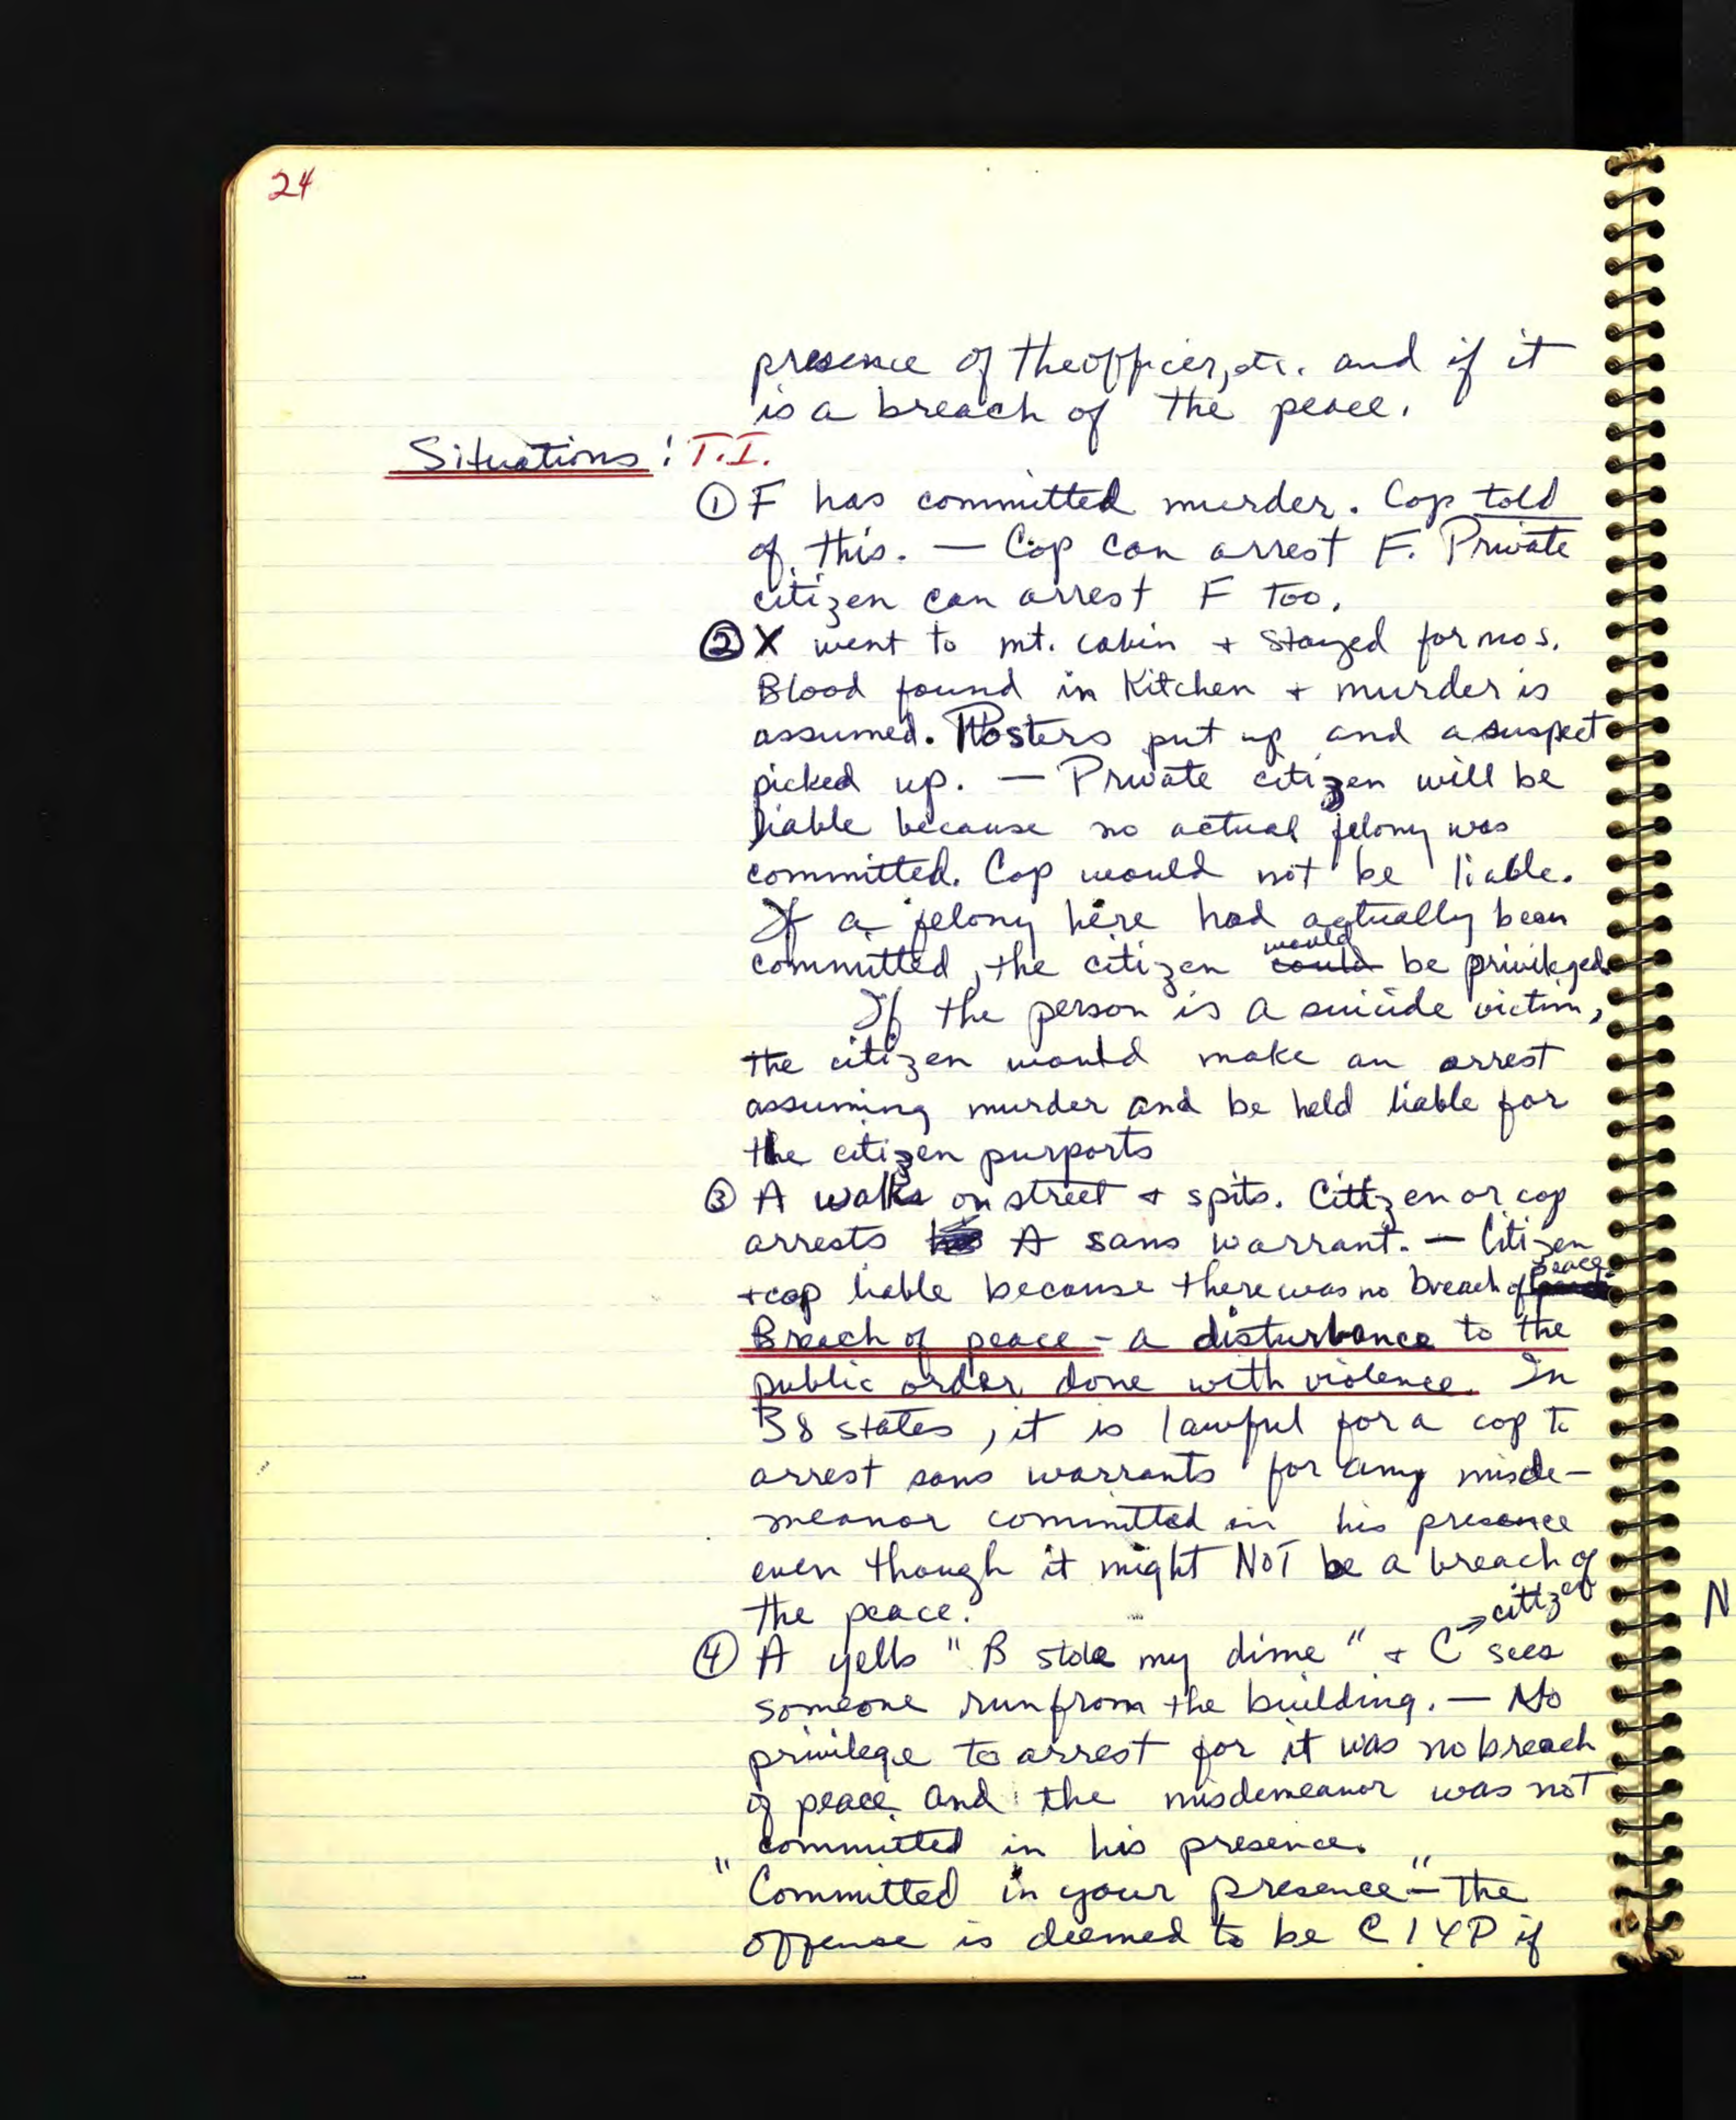 24
presence of the officer, etc. and if it
is a breach of the peace.
Situations: T.I.
① F has committed murder. Cop told
of this. — Cop can arrest F. Private
citizen can arrest F too.
② X went to mt. cabin + stayed for mos.
Blood found in Kitchen + murder is
assumed. Posters put up and a suspect
picked up. — Private citizen will be
liable because no actual felony was
committed. Cop would not be liable.
If a felony here had actually been
committed, the citizen would be privileged.
If the person is a suicide victim,
the citizen would make an arrest
assuming murder and be held liable for
the citizen purports
③ A walks on street + spits. Citizen or cop
arrests A sans warrant. — Citizen
+ cop liable because there was no breach of peace.
Breach of peace - a disturbance to the
public order done with violence. In
38 states, it is lawful for a cop to
arrest sans warrants for any misde-
meanor committed in his presence
even though it might NOT be a breach of
the peace.
④ A yells "B stole my dime" + C → citizen sees
someone run from the building. — No
privilege to arrest for it was no breach
of peace and the misdemeanor was not
committed in his presence.
"Committed in your presence" - the
offense is deemed to be CIYP if
N